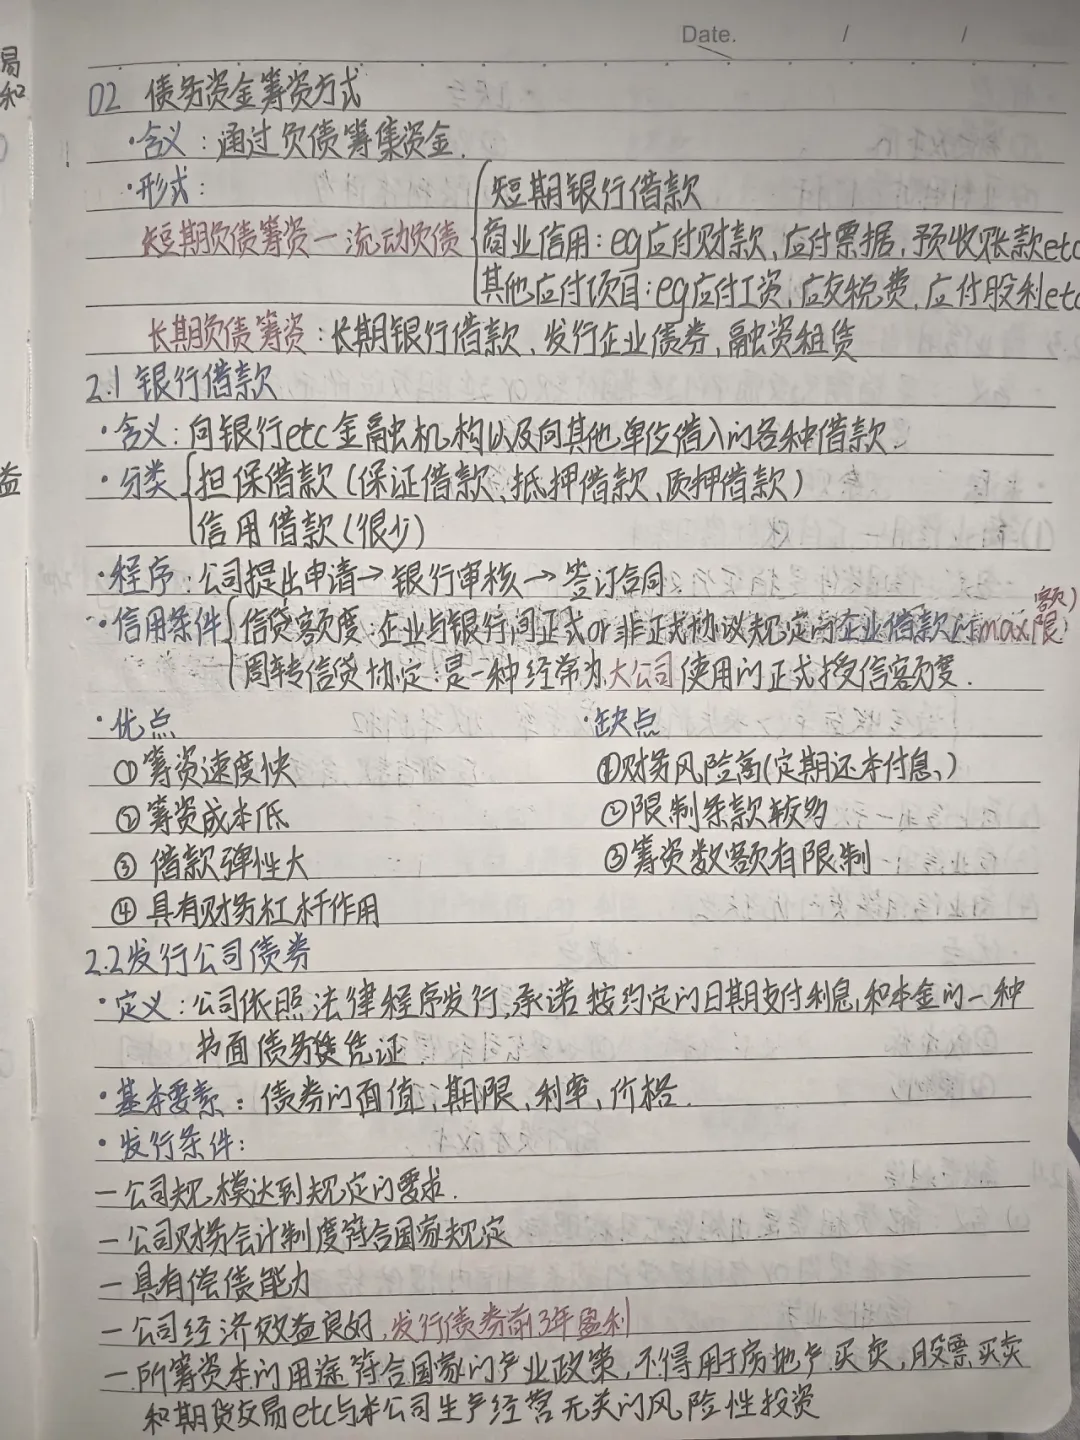 Date. / /
局
和
益
02 债务资金筹资方式
·含义：通过负债筹集资金.
·形式：
短期银行借款
短期负债筹资—流动负债
商业信用：eg应付财款、应付票据，预收账款etc
其他应付项目：eg应付工资、应交税费，应付股利etc
长期负债筹资：长期银行借款、发行企业债券，融资租赁
2.1 银行借款
·含义：向银行etc金融机构以及向其他单位借入的各种借款.
·分类
担保借款(保证借款、抵押借款、质押借款)
信用借款(很少)
·程序：公司提出申请→银行审核→签订合同
·信用条件
信贷额度：企业与银行间正式or非正式协议规定的企业借款的max限额
周转信贷协定：是一种经常为大公司使用的正式授信额度.
·优点 ·缺点
①筹资速度快 ①财务风险高(定期还本付息、)
②筹资成本低 ②限制条款较多
③ 借款弹性大 ③筹资数额有限制
④ 具有财务杠杆作用
2.2发行公司债券
·定义：公司依照法律程序发行，承诺按约定的日期支付利息和本金的一种
书面债务凭证
·基本要素：债券的面值、期限、利率、价格.
·发行条件：
—公司规模达到规定的要求.
—公司财务会计制度符合国家规定
—具有偿债能力
—公司经济效益良好，发行债券前3年盈利
—所筹资本的用途符合国家的产业政策，不得用于房地产买卖，股票买卖
和期货交易etc与本公司生产经营无关的风险性投资